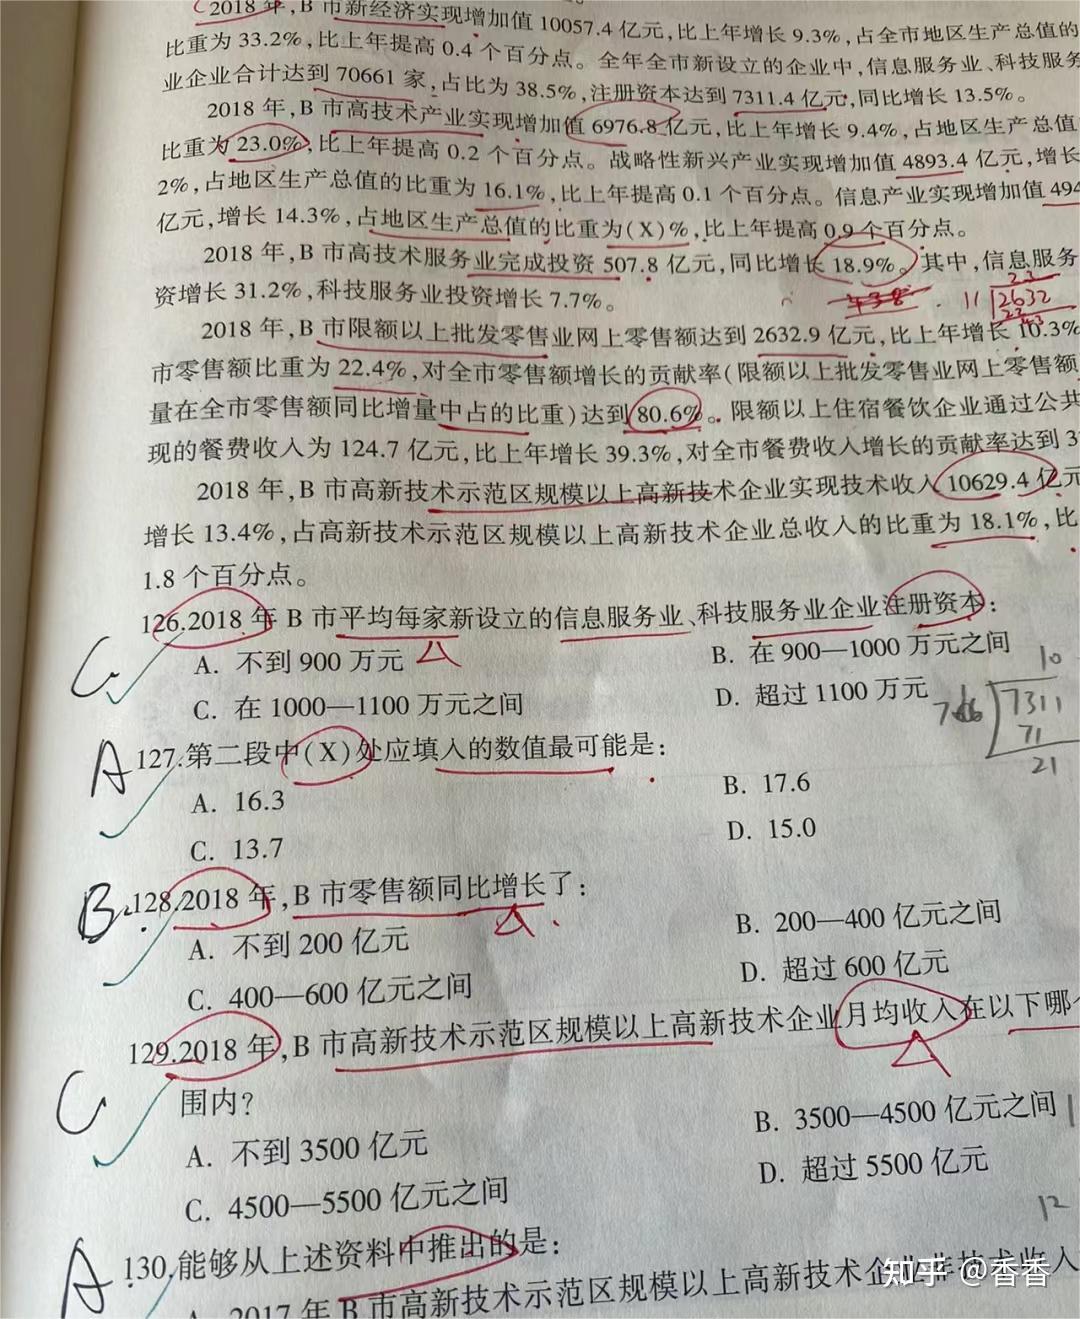 2018年,B市新经济实现增加值10057.4亿元,比上年增长9.3%,占全市地区生产总值的
比重为33.2%,比上年提高0.4个百分点。全年全市新设立的企业中,信息服务业、科技服务
业企业合计达到70661家,占比为38.5%,注册资本达到7311.4亿元,同比增长13.5%。
2018年,B市高技术产业实现增加值6976.8亿元,比上年增长9.4%,占地区生产总值
比重为23.0%,比上年提高0.2个百分点。战略性新兴产业实现增加值4893.4亿元,增长
2%,占地区生产总值的比重为16.1%,比上年提高0.1个百分点。信息产业实现增加值494
亿元,增长14.3%,占地区生产总值的比重为(X)%,比上年提高0.9个百分点。
2018年,B市高技术服务业完成投资507.8亿元,同比增长18.9%。其中,信息服务
资增长31.2%,科技服务业投资增长7.7%。
23
11 2632
2018年,B市限额以上批发零售业网上零售额达到2632.9亿元,比上年增长10.3%
市零售额比重为22.4%,对全市零售额增长的贡献率(限额以上批发零售业网上零售额
量在全市零售额同比增量中占的比重)达到80.6%。限额以上住宿餐饮企业通过公共
现的餐费收入为124.7亿元,比上年增长39.3%,对全市餐费收入增长的贡献率达到3
2018年,B市高新技术示范区规模以上高新技术企业实现技术收入10629.4亿元
增长13.4%,占高新技术示范区规模以上高新技术企业总收入的比重为18.1%,比
1.8个百分点。
126.2018年B市平均每家新设立的信息服务业、科技服务业企业注册资本:
C
A. 不到900万元
B. 在900—1000万元之间
C. 在1000—1100万元之间
D. 超过1100万元
10
7311
71
21
A
127.第二段中(X)处应填入的数值最可能是:
A. 16.3
B. 17.6
C. 13.7
D. 15.0
B
128.2018年,B市零售额同比增长了:
A. 不到200亿元
B. 200—400亿元之间
C. 400—600亿元之间
D. 超过600亿元
129.2018年,B市高新技术示范区规模以上高新技术企业月均收入在以下哪个
C
围内?
A. 不到3500亿元
B. 3500—4500亿元之间
C. 4500—5500亿元之间
D. 超过5500亿元
12
A
130.能够从上述资料中推出的是:
A. 2017年B市高新技术示范区规模以上高新技术企业技术收入
知乎 @香香